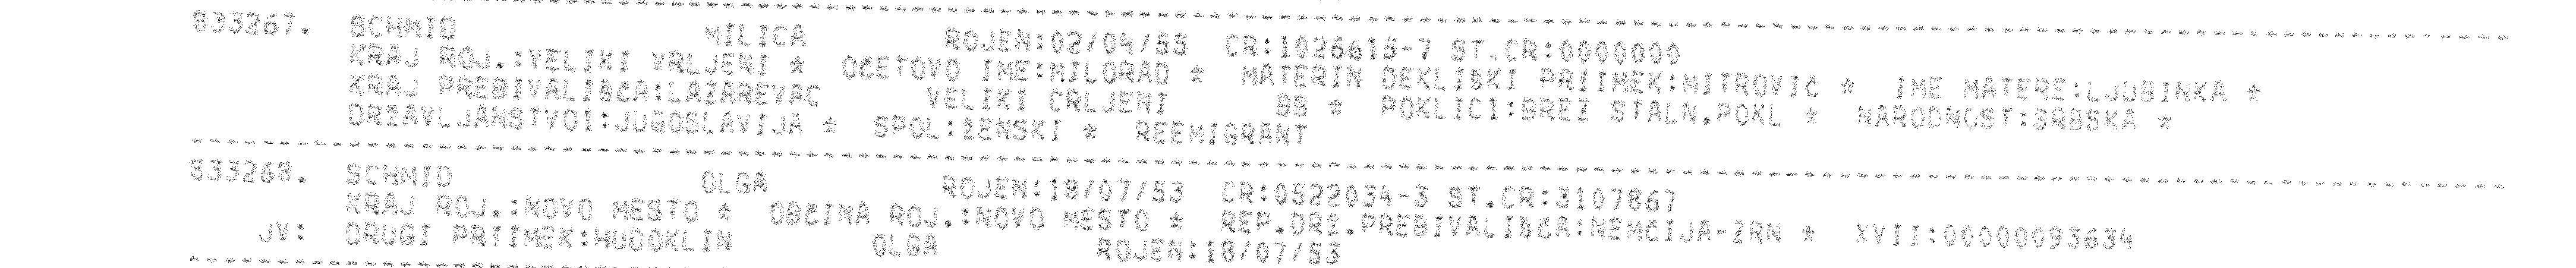 833267. SCHMID MILICA ROJEN:02/04/55 CR:1026615-7 ST.CR:0000000
KRAJ ROJ.:VELIKI VRLJENI * OČETOVO IME:MILORAD * MATERIN DEKLIŠKI PRIIMEK:MITROVIĆ * IME MATERE:LJUBINKA *
KRAJ PREBIVALIŠČA:LAZAREVAC VELIKI CRLJENI BB * POKLIC1:BREZ STALN.POKL * NARODNOST:SRBSKA *
DRŽAVLJANSTVO1:JUGOSLAVIJA * SPOL:ŽENSKI * REEMIGRANT
833268. SCHMID OLGA ROJEN:18/07/53 CR:0522034-3 ST.CR:3107867
KRAJ ROJ.:NOVO MESTO * OBČINA ROJ.:NOVO MESTO * REP.DRŽ.PREBIVALIŠČA:NEMČIJA-ZRN * XVII:00000093634
JV: DRUGI PRIIMEK:HUDOKLIN OLGA ROJEN:18/07/53